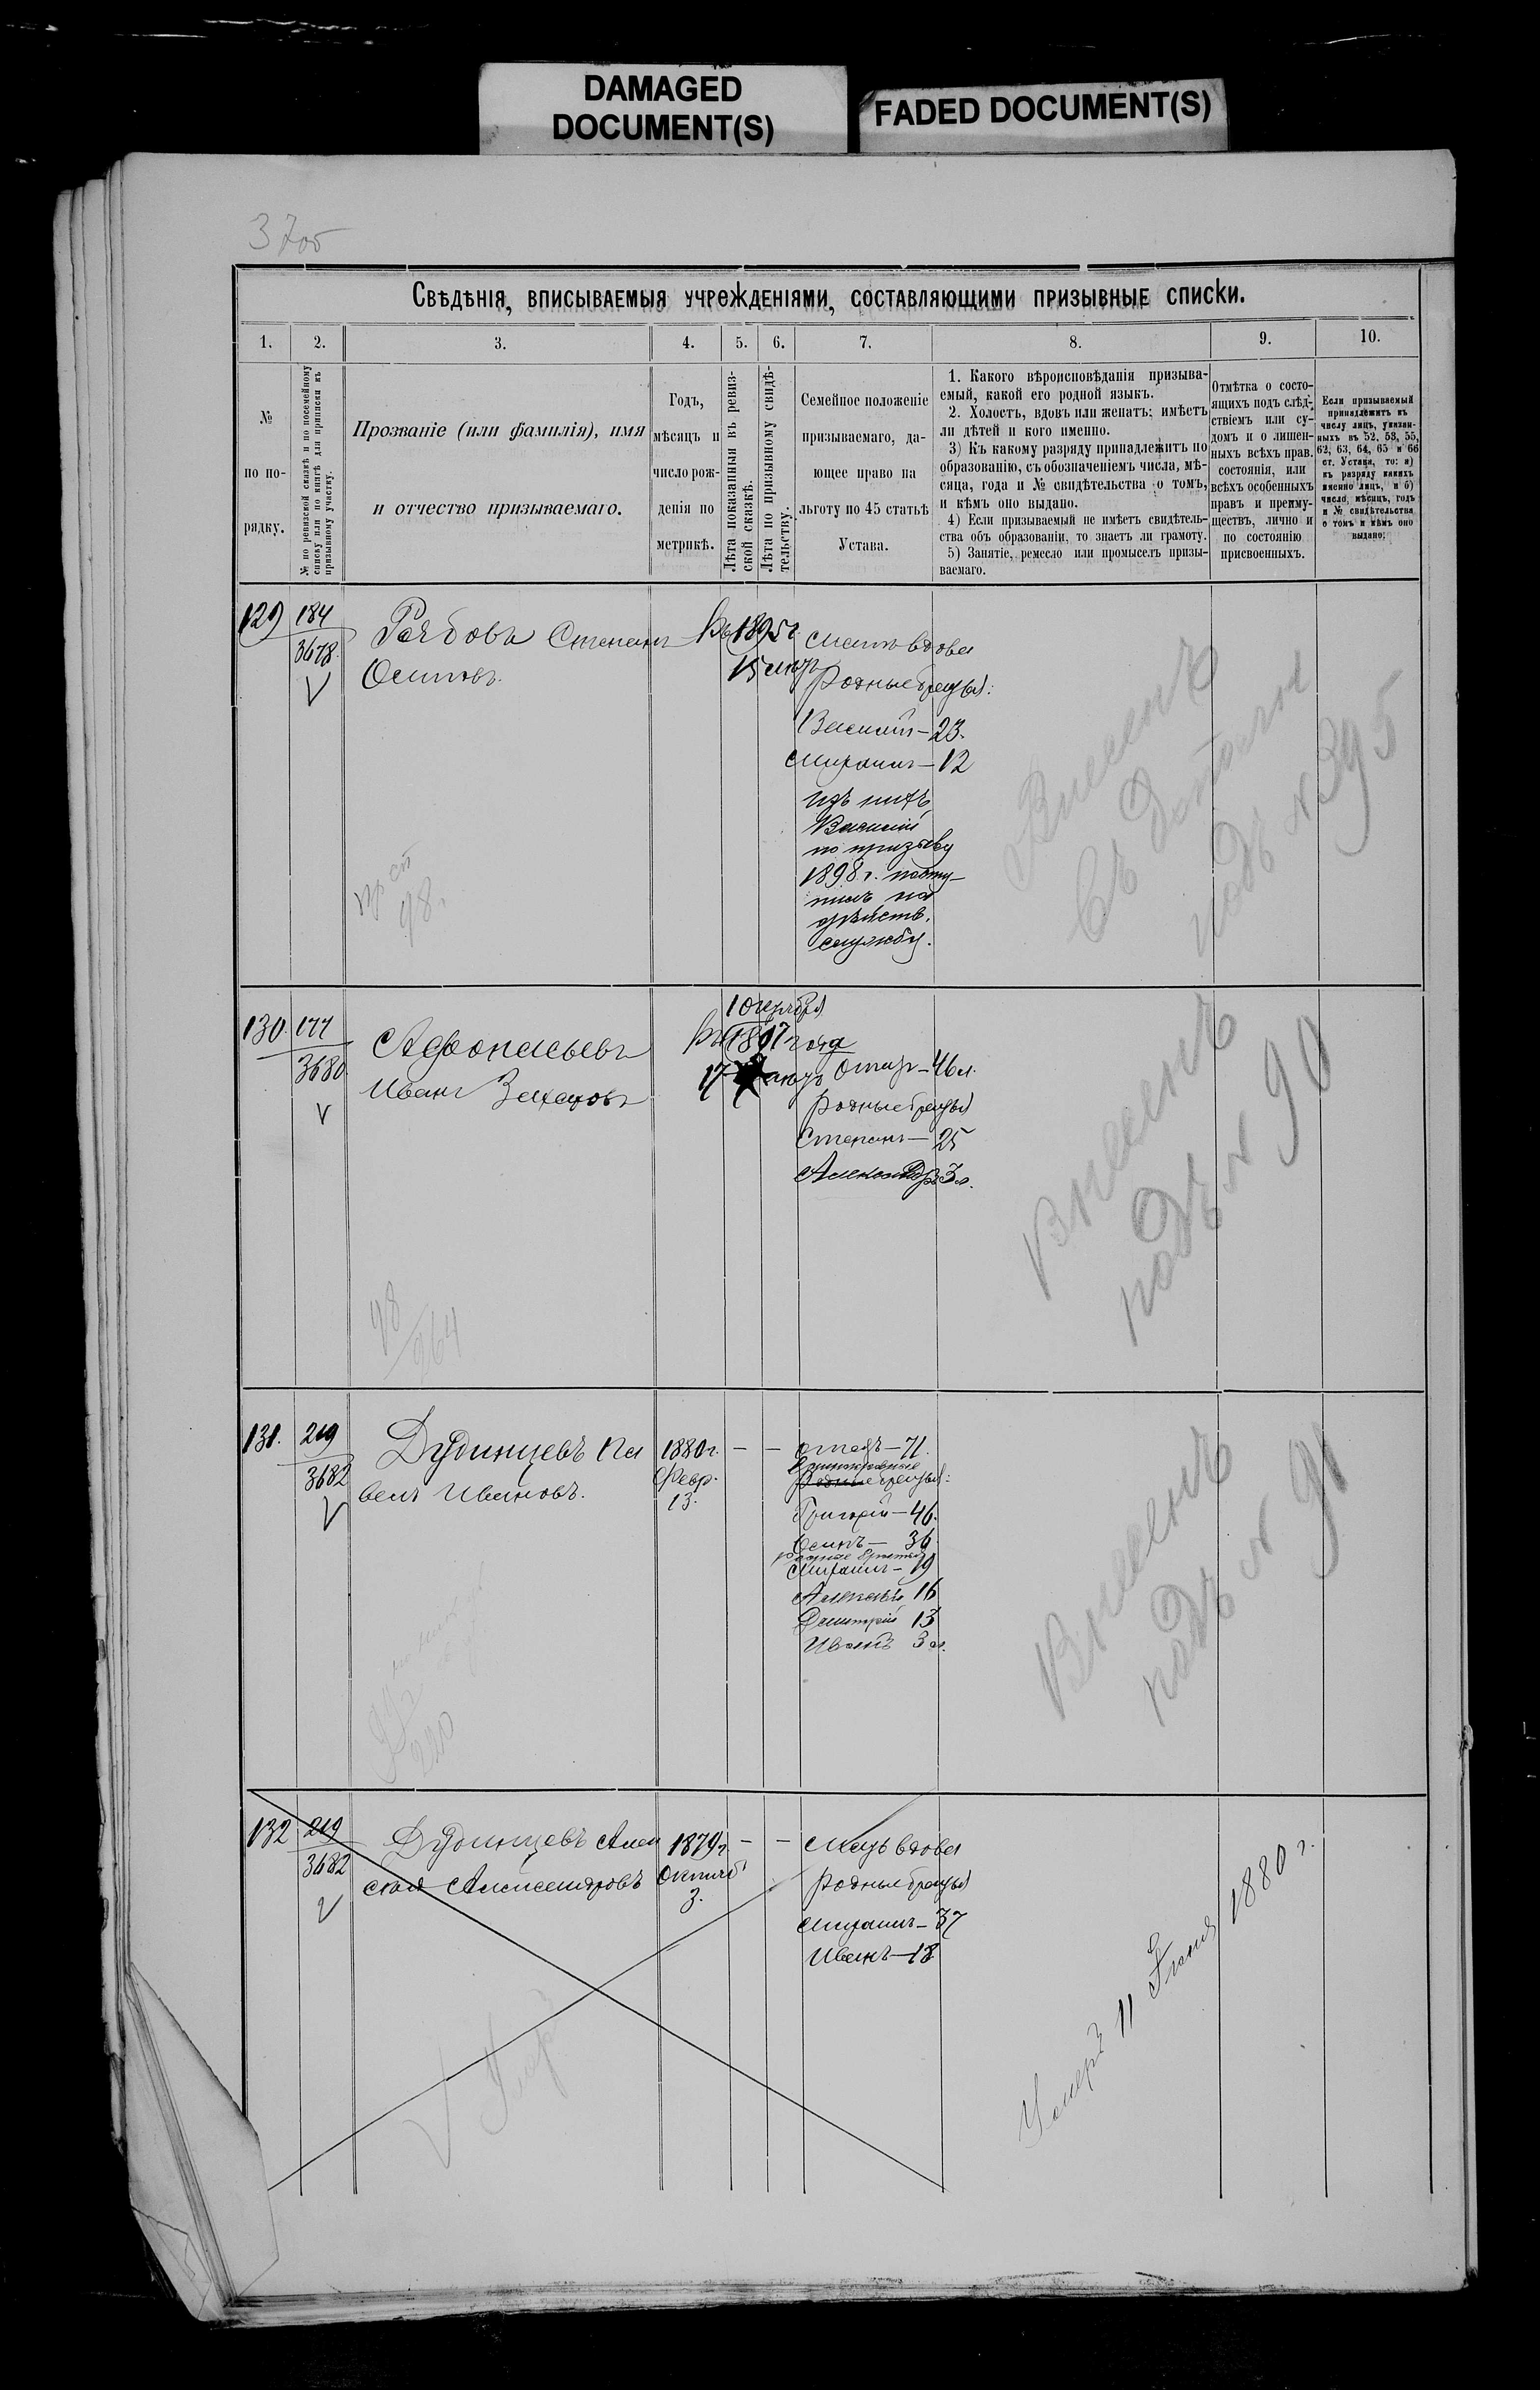 DAMAGED
DOCUMENT(S)
FADED DOCUMENT(S)
370б
Свѣдѣнія, вписываемыя учрежденіями, составляющими призывные списки.
1. 2. 3. 4. 5. 6. 7. 8. 9. 10.
№
по по-
рядку.
№ по ревизской сказкѣ и по посемейному
списку или по книгѣ для приписки къ
призывному участку.
Прозваніе (или фамилія), имя
и отчество призываемаго.
Годъ,
мѣсяцъ и
число рож-
денія по
метрикѣ.
Лѣта показанныя въ ревиз-
ской сказкѣ.
Лѣта по призывному свидѣ-
тельству.
Семейное положеніе
призываемаго, да-
ющее право на
льготу по 45 статьѣ
Устава.
1. Какого вѣроисповѣданія призыва-
емый, какой его родной языкъ.
2. Холостъ, вдовъ или женатъ; имѣетъ
ли дѣтей и кого именно.
3) Къ какому разряду принадлежитъ по
образованію, съ обозначеніемъ числа, мѣ-
сяца, года и № свидѣтельства о томъ,
и кѣмъ оно выдано.
4) Если призываемый не имѣетъ свидѣтель-
ства объ образованіи, то знаетъ ли грамоту.
5) Занятіе, ремесло или промыселъ призы-
ваемаго.
Отмѣтка о состо-
ящихъ подъ слѣд-
ствіемъ или су-
домъ и о лишен-
ныхъ всѣхъ прав.
состоянія, или
всѣхъ особенныхъ
правъ и преиму-
ществъ, лично и
по состоянію
присвоенныхъ.
Если призываемый
принадлежитъ къ
числу лицъ, указан-
ныхъ въ 52, 53, 55,
62, 63, 64, 65 и 66
ст. Устава, то: а)
къ разряду какихъ
именно лицъ, и б)
число, мѣсяцъ, годъ
и № свидѣтельства
о томъ и кѣмъ оно
выдано.
129
184
3678.
V
Рябовъ Степанъ
Осиповъ.
Въ 1895 г.
15 лѣтъ
Мать вдова
Родные братья:
Василій – 23.
Михаилъ – 12
изъ нихъ
Василій
по призыву
1898 г. посту-
пилъ на
дѣйств.
службу.
98 г.
Внесенъ
подъ № 395
130.
177
3680.
V
Афонасьевъ
Иванъ Захаровъ
1 октября
Въ 1897 года
17 лѣтъ
Отецъ – 46 л.
Родные братья
Степанъ – 25
Александръ 3 л.
98
264
Внесенъ
подъ № 90
131.
219
3682
V
Дудинцевъ Па
велъ Ивановъ.
1880 г.
Февр.
13.
– –
Отецъ – 71.
Единокровные
Родные братья:
Григорій – 46.
Осипъ – 36
родные братья
Михаилъ – 19
Алексѣй 16
Дмитрій 13
Иванъ 3 л.
220
Внесенъ
подъ № 91
132
219
3682
V
Дудинцевъ Алек
сѣй Александровъ
1879 г.
Октяб
3.
– –
Мать вдова
Родные братья
Михаилъ – 37
Иванъ – 18
V Умеръ
Умеръ 11 Іюня 1880 г.